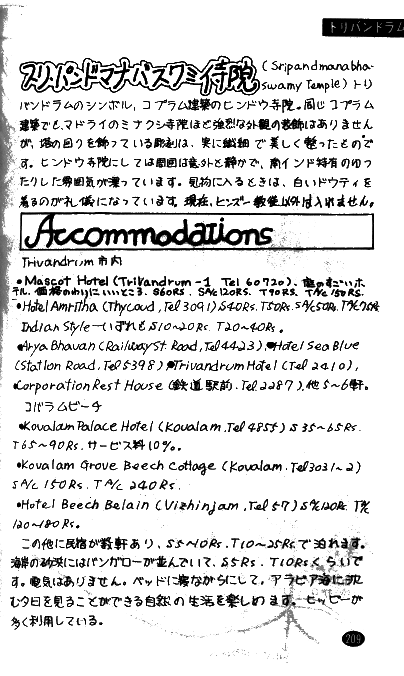 トリバンドラム
スリ・パンドマナバスワミ寺院 (Sripandmanabha-
swamy Temple) トリ
バンドラムのシンボル, コプラム建築のヒンドウ寺院。同じコプラム
建築でも、マドライのミナクシ寺院ほど強烈な外観の装飾はありません
が、塔の回りを飾っている彫刻は、実に繊細で美しく整ったもので
す。ヒンドウ寺院にしては周囲は意外と静かで、南インド特有のゆっ
たりした雰囲気が漂っています。見物に入るときは、白いドウティを
着るのが礼儀になっています。現在、ヒンズー教徒以外は入れません。
Accommodations
Trivandrum 市内
●Mascot Hotel (Trivandrum-1 Tel 60720)、庭のすごいホ
テル。価格のわりにいいところ。S60RS. S A/C 120RS. T90RS. T A/C 150RS.
●Hotel Amritha (Thycaud, Tel 3091) S40RS. T50RS. S A/C 50RS. T A/C 75RS
Indian Style→いずれもS10〜20Rs. T20〜40Rs.
●Arya Bhavan (Railway St. Road, Tel 4423). ●Hotel Sea Blue
(Station Road, Tel 5398) ●Trivandrum Hotel (Tel 2410),
●Corporation Rest House (鉄道駅前. Tel 2287), 他5〜6軒。
コバラムビーチ
●Kovalam Palace Hotel (Kovalam, Tel 4855) S 35〜65Rs.
T65〜90Rs. サービス料10%。
●Kovalam Grove Beech Cottage (Kovalam. Tel 3031〜2)
S A/C 150Rs. T A/C 240Rs.
●Hotel Beech Belain (Vizhinjam, Tel 57) S A/C 120Rs. T A/C
120〜180Rs.
この他に民宿が数軒あり、S5〜10Rs. T10〜25Rs. で泊れます。
海岸の砂浜にはバンガローが並んでいて、S5Rs. T10Rsくらいで
す。電気はありません。ベッドに寝ながらにして, アラビア海に沈
む夕日を見ることができる自然の生活を楽しめます。ヒッピーが
多く利用している。
209